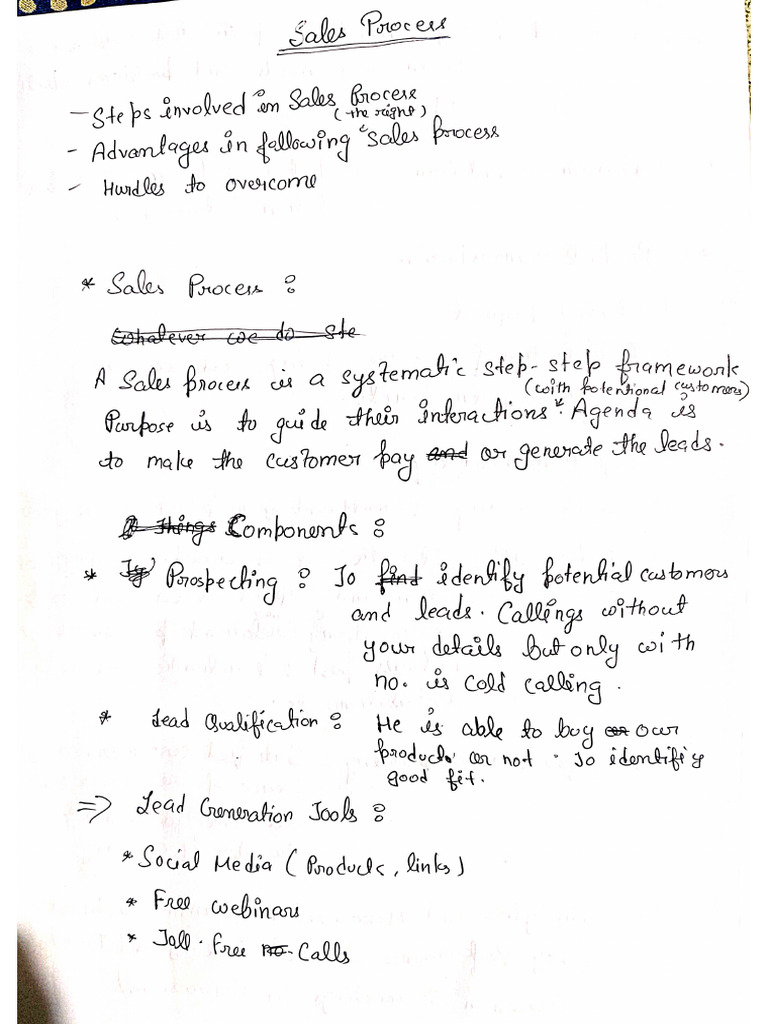 Sales Process
- Steps involved in Sales Process
(the right)
- Advantages in following sales process
- Hurdles to overcome
* Sales Process :
Whatever we do ste
A Sales process is a systematic step-step framework
(with potentional customers)
Purpose is to guide their interactions. Agenda is
to make the customer pay and or generate the leads.
Things Components :
* Prospecting : To find identify potential customers
and leads. Callings without
your details but only with
no. is cold calling.
* Lead Qualification : He is able to buy or our
product or not. To identify
good fit.
=> Lead Generation Tools :
* Social Media (Products, links)
* Free webinars
* Toll-Free no. Calls